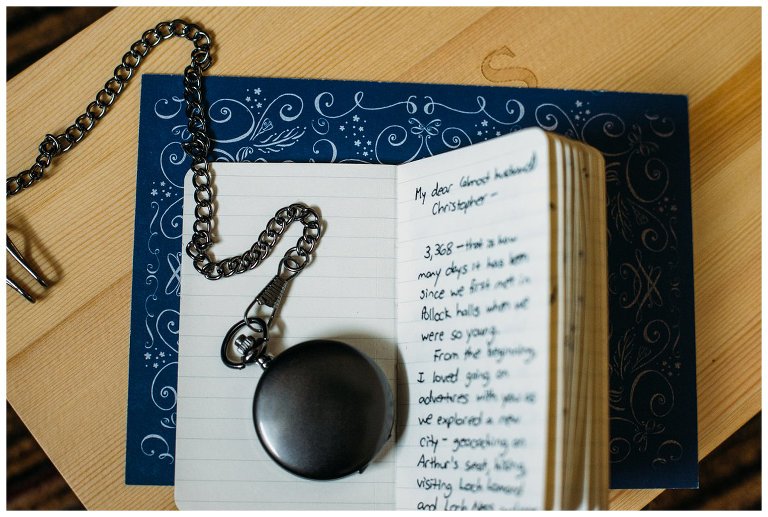 S
My dear (almost husband)
Christopher -
3,368 - that is how
many days it has been
since we first met in
Pollock halls when we
were so young.
From the beginning,
I loved going on
adventures with you as
we explored a new
city - geocaching on
Arthur's seat, hiking,
visiting Loch Lomond
and Loch Ness